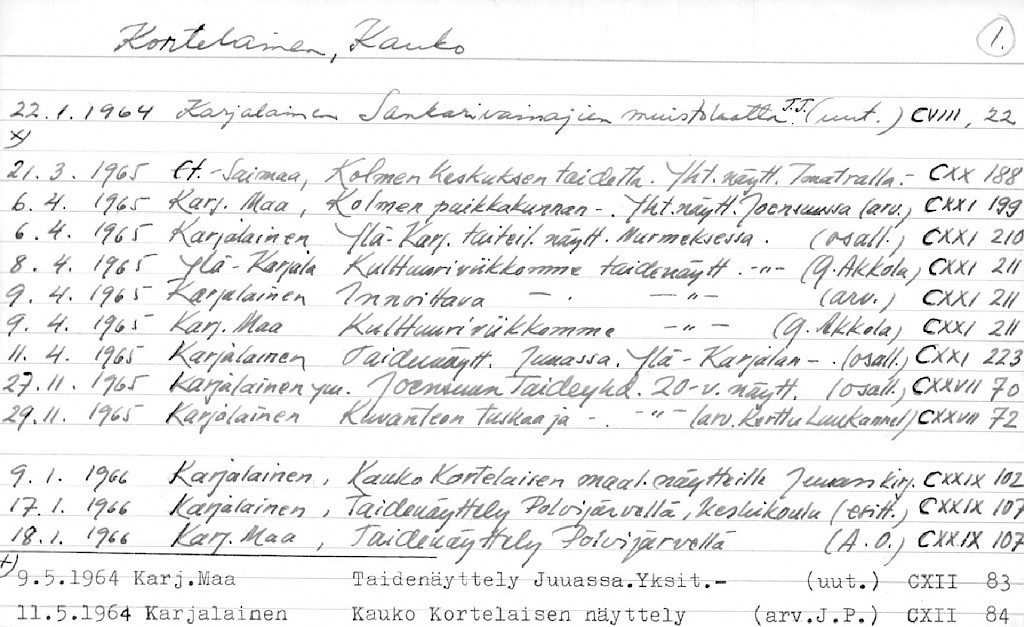 Kortelainen, Kauko 1.
22.1.1964 Karjalainen Sankarivainajien muistolaatta. J.J. (uut.) CVIII, 22
x)
21.3.1965 Et.-Saimaa, Kolmen keskuksen taidetta. Yht. näytt. Imatralla.- CXX 188
6.4.1965 Karj. Maa, Kolmen paikkakunnan -. Yht. näytt. Joensuussa (arv.) CXXI 199
6.4.1965 Karjalainen Ylä-Karj. taiteil. näytt. Nurmeksessa. (osall.) CXXI 210
8.4.1965 Ylä-Karjala Kulttuuriviikkomme taidenäytt. -"- (G. Akkola) CXXI 211
9.4.1965 Karjalainen Innoittava -. -"- (arv.) CXXI 211
9.4.1965 Karj. Maa Kulttuuriviikkomme -"- (G. Akkola) CXXI 211
11.4.1965 Karjalainen Taidenäytt. Juuassa. Ylä-Karjalan -. (osall.) CXXI 223
27.11.1965 Karjalainen ym. Joensuun Taideyhd. 20-v. näytt. (osall.) CXXVII 70
29.11.1965 Karjalainen Kuvanteon tuskaa ja -. -"- (arv. Kerttu Luukannel) CXXVII 72
9.1.1966 Karjalainen, Kauko Kortelaisen maal. näytteillä Juuan kirj. CXXIX 102
17.1.1966 Karjalainen, Taidenäyttely Polvijärvellä, keskikoulu (esitt.) CXXIX 107
18.1.1966 Karj. Maa, Taidenäyttely Polvijärvellä (A.O.) CXXIX 107
x)
9.5.1964 Karj.Maa Taidenäyttely Juuassa.Yksit.- (uut.) CXII 83
11.5.1964 Karjalainen Kauko Kortelaisen näyttely (arv.J.P.) CXII 84